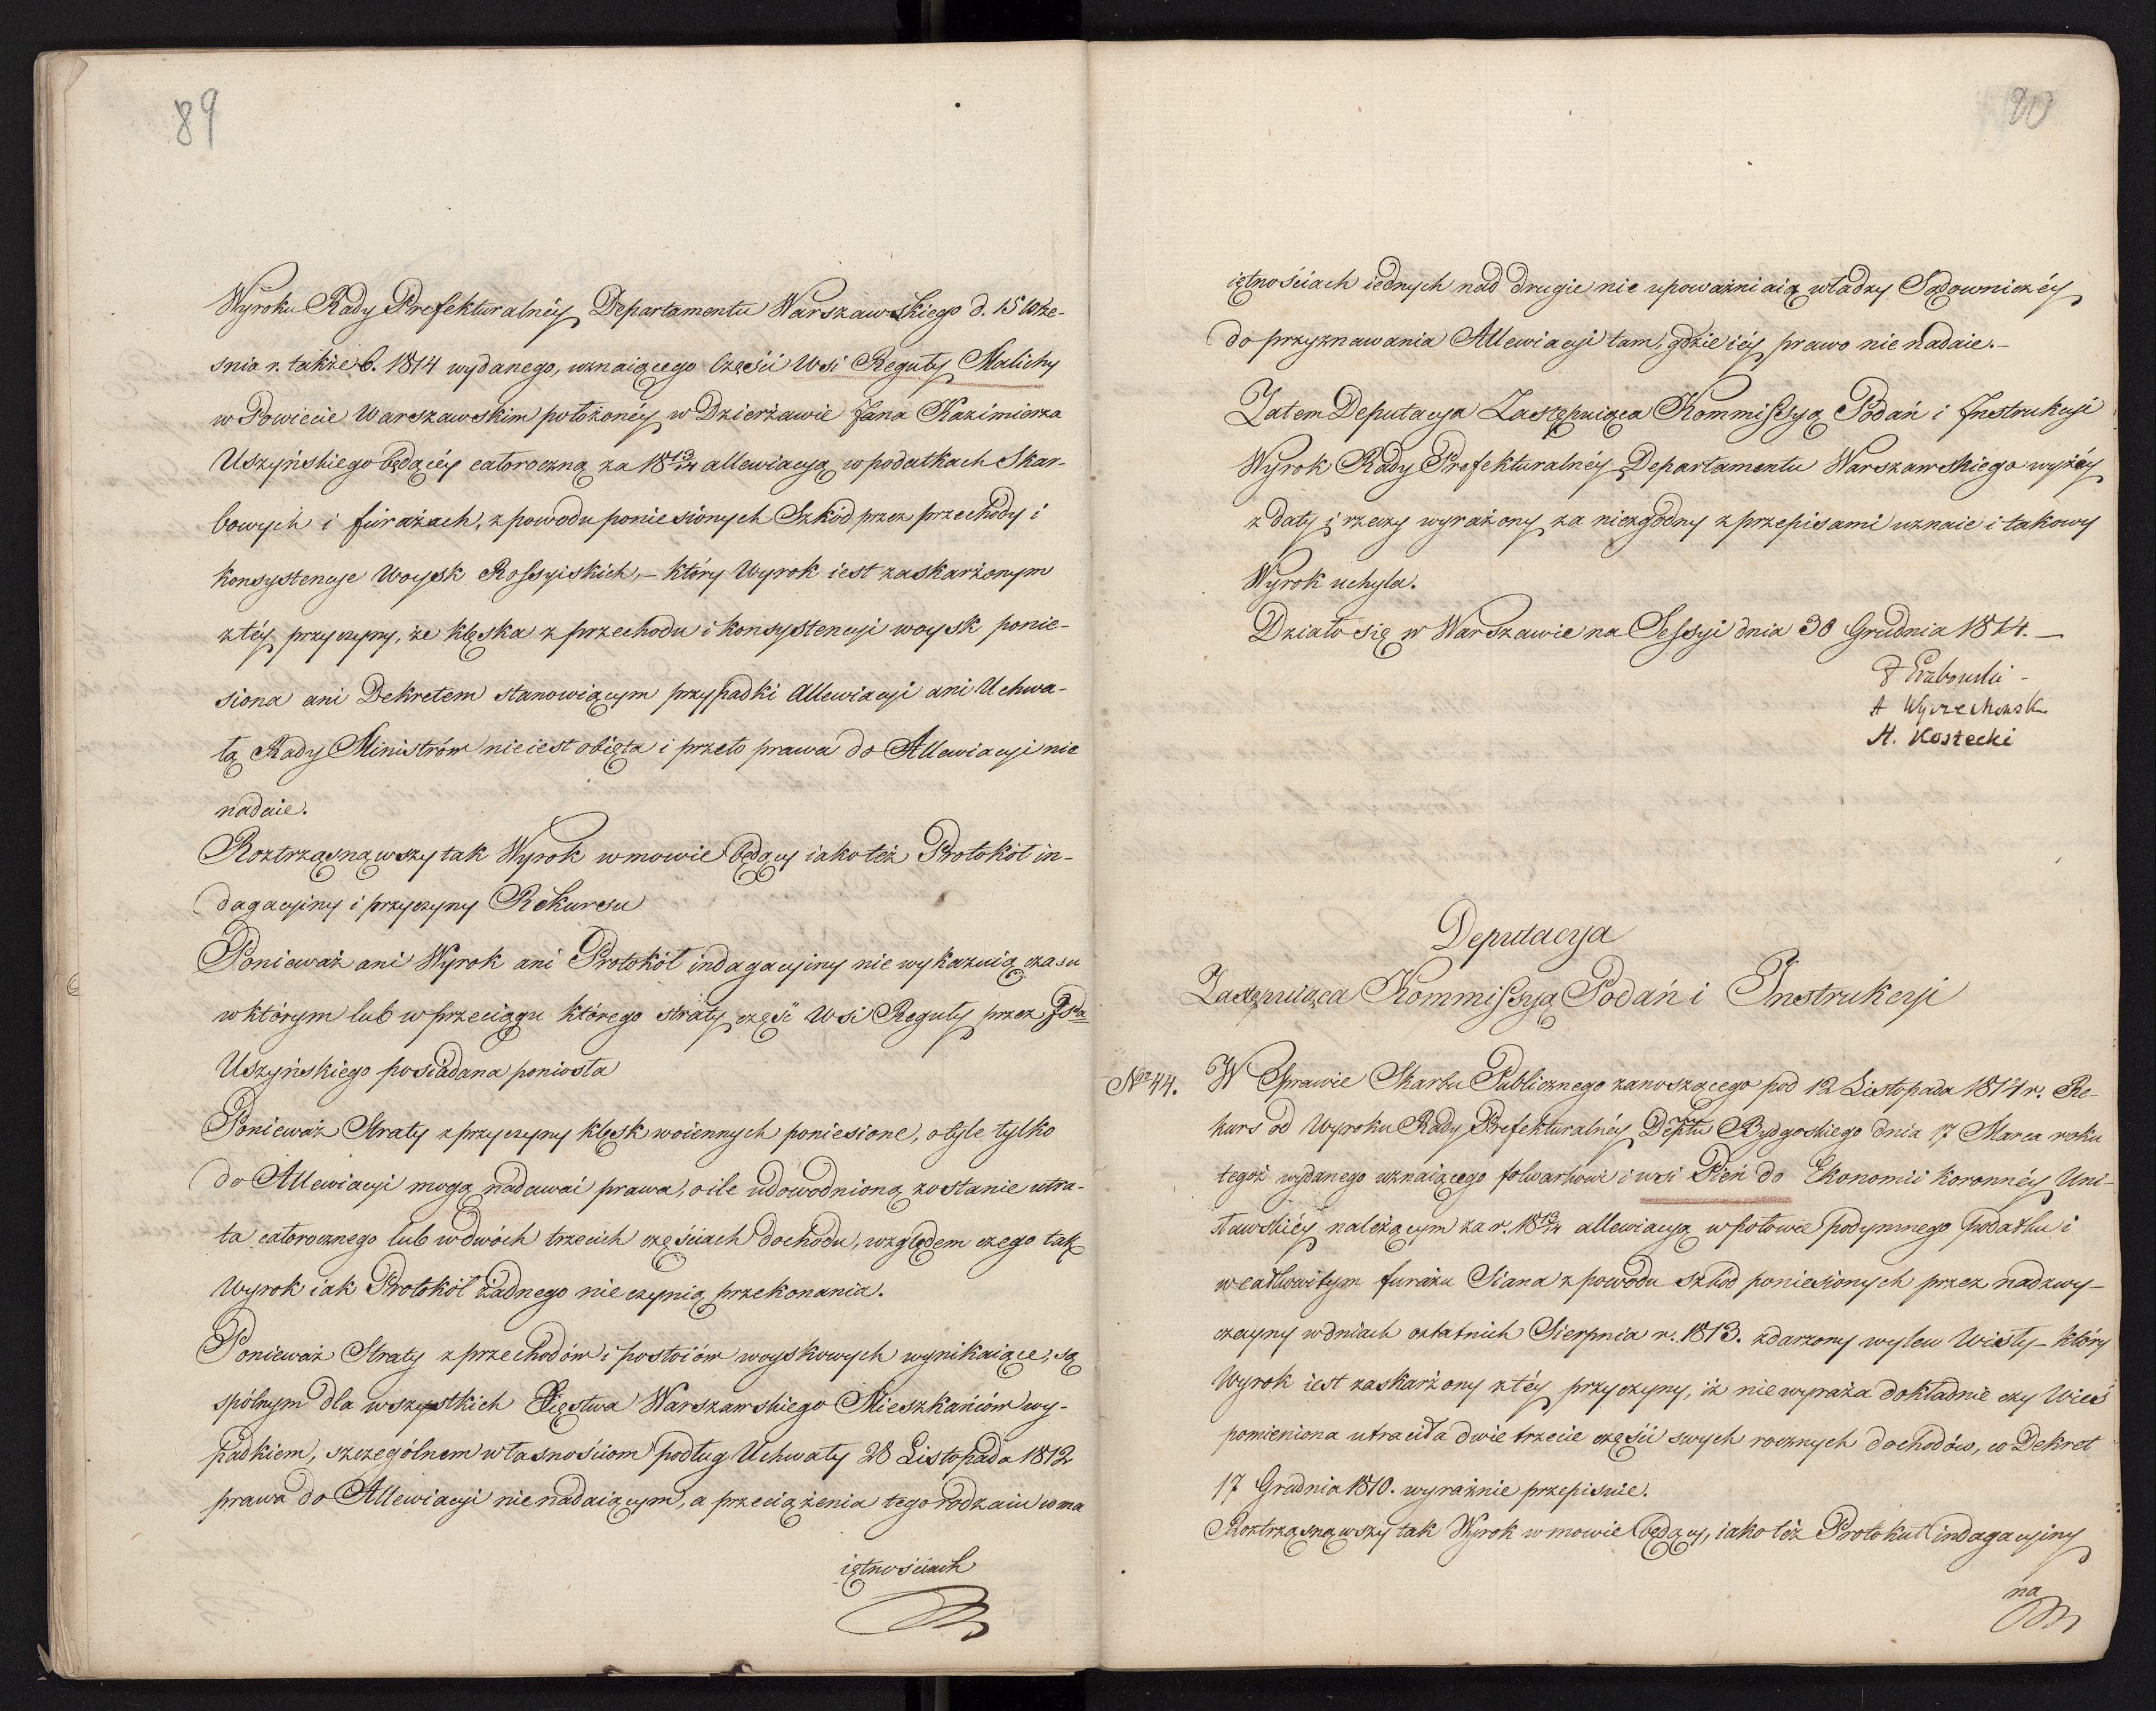 89
Wyroku Rady Prefekturalnéy Departamentu Warszawskiego d. 15 Wrze-
snia r. także b. 1814 wydanego, uznaiącego Części Wsi Reguły Malichy
w Powiecie Warszawskim położonéy w Dzierżawie Jana Kazimierza
Uszyńskiego będącéy całoroczną za 18 13/14 allewiacyą w podatkach Skar-
bowych i furażach, z powodu poniesionych Szkód przez przechody i
konsystencye Woysk Rossyiskich, – który Wyrok iest zaskarżonym
z téy przyczyny, że klęska z przechodu i konsystencyi woysk ponie-
siona ani Dekretem stanowiącym przypadki Allewiacyi ani Uchwa-
łą Rady Ministrów nie iest obięta i przeto prawa do Allewiacyi nie
nadaie.
Roztrząsnąwszy tak Wyrok w mowie będący iako też Protokół in-
dagacyiny i przyczyny Rekursu
Ponieważ ani Wyrok ani Protokół indagacyiny nie wykazuią czasu
w którym lub w przeciągu którego straty część Wsi Reguły przez
Uszyńskiego posiadana poniosła
Ponieważ Straty z przyczyny klęsk woiennych poniesione, o tyle tylko
do Allewiacyi mogą nadawać prawa, o ile udowodnioną zostanie utra-
ta całorocznego lub w dwóch trzecich częściach dochodu, względem czego tak
Wyrok iak Protokół żadnego nie czynią przekonania.
Ponieważ Straty z przechodów i postoiów woyskowych wynikaiące, są
spólnym dla wszystkich Xięstwa Warszawskiego Mieszkańców wy-
padkiem, szczególnem własnościom podług Uchwały 28 Listopada 1812
prawa do Allewiacyi nie nadaiącym, a przeciążenia tego rodzaiu w ma
iętnościach
90
iętnościach iednych nad drugie nie upoważniaią władzy Sądowniczéy
do przyznawania Allewiacyi tam, gdzie iéy prawo nie nadaie. –
Zatem Deputacya Zastępuiąca Kommissyą Podań i Instrukcyi
Wyrok Rady Prefekturalnéy Departamentu Warszawskiego wyżéy
z daty i rzeczy wyrażony za niezgodny z przepisami uznaie i takowy
Wyrok uchyla.
Działo się w Warszawie na Sessyi dnia 30 Grudnia 1814. –
A Wyczechowski
A. Kostecki
Deputacya
Zastępuiąca Kommissyą Podań i Instrukcyi
Nro 44. W Sprawie Skarbu Publicznego zanoszącego pod 12 Listopada 1814 r. Re-
kurs od Wyroku Rady Prefekturalnéy Deptu Bydgoskiego dnia 17 Marca roku
tegoż wydanego uznaiącego folwarkowi i wsi Pień do Ekonomii koronnéy Uni-
sławskiéy należącym za r. 18 13/14 allewiacyą w połowie podymnego podatku i
w całkowitym furażu Siana z powodu szkód poniesionych przez nadzwy-
czayny w dniach ostatnich Sierpnia r. 1813. zdarzony wylew Wisły – który
Wyrok iest zaskarżony z téy przyczyny, iż nie wyraża dokładnie czy Wieś
pomieniona utraciła dwie trzecie części swych rocznych dochodów, co Dekret
17 Grudnia 1810. wyraźnie przepisuie.
Roztrząsnąwszy tak Wyrok w mowie będący, iako też Protokuł indagacyiny
na